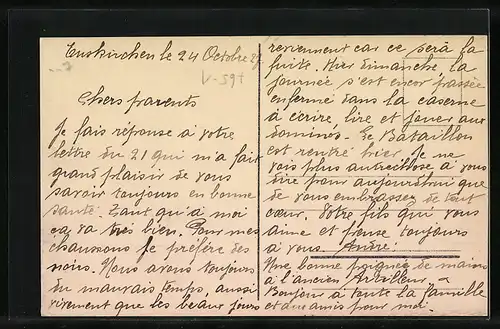 Euskirchen le 24 Octobre 27
V-59t
Chers parents
Je fais réponse a votre
lettre du 21 qui m'a fait
grand plaisir de vous
savoir toujours en bonne
santé. Tant qu'à moi
ca va très bien. Pour mes
chaussons je préfère des
noirs. Nous avons toujours
du mauvais temps, aussi
vivement que les beaux jours
reviennent car ce serà la
fuite. Hier dimanche la
journée s'est encor passée
enfermé dans la caserne
à écrire, lire et jouer aux
dominos. Le Bataillon
est rentré hier. Je ne
vois plus autre chose à vous
dire pour aujourd'hui que
de vous embrasser de tout
cœur. Votre fils qui vous
aime et pense toujours
à vous. André:
Une bonne poignée de mains
à l'ancien Artilleur
Bonjour à toute la famille
et aux amis pour moi.